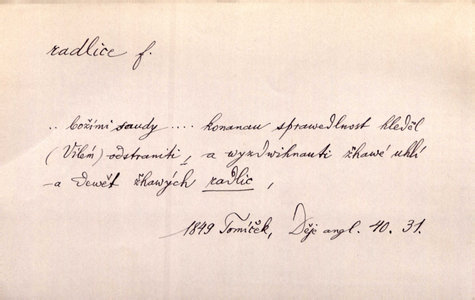 radlice f.
.. božími saudy .... konanau sprawedlnost hleděl
(Vilém) odstraniti, a wyzdwihnauti žhawé uhlí
a dewět žhawých radlic,
1849 Tomíček, Děje angl. 40. 31.